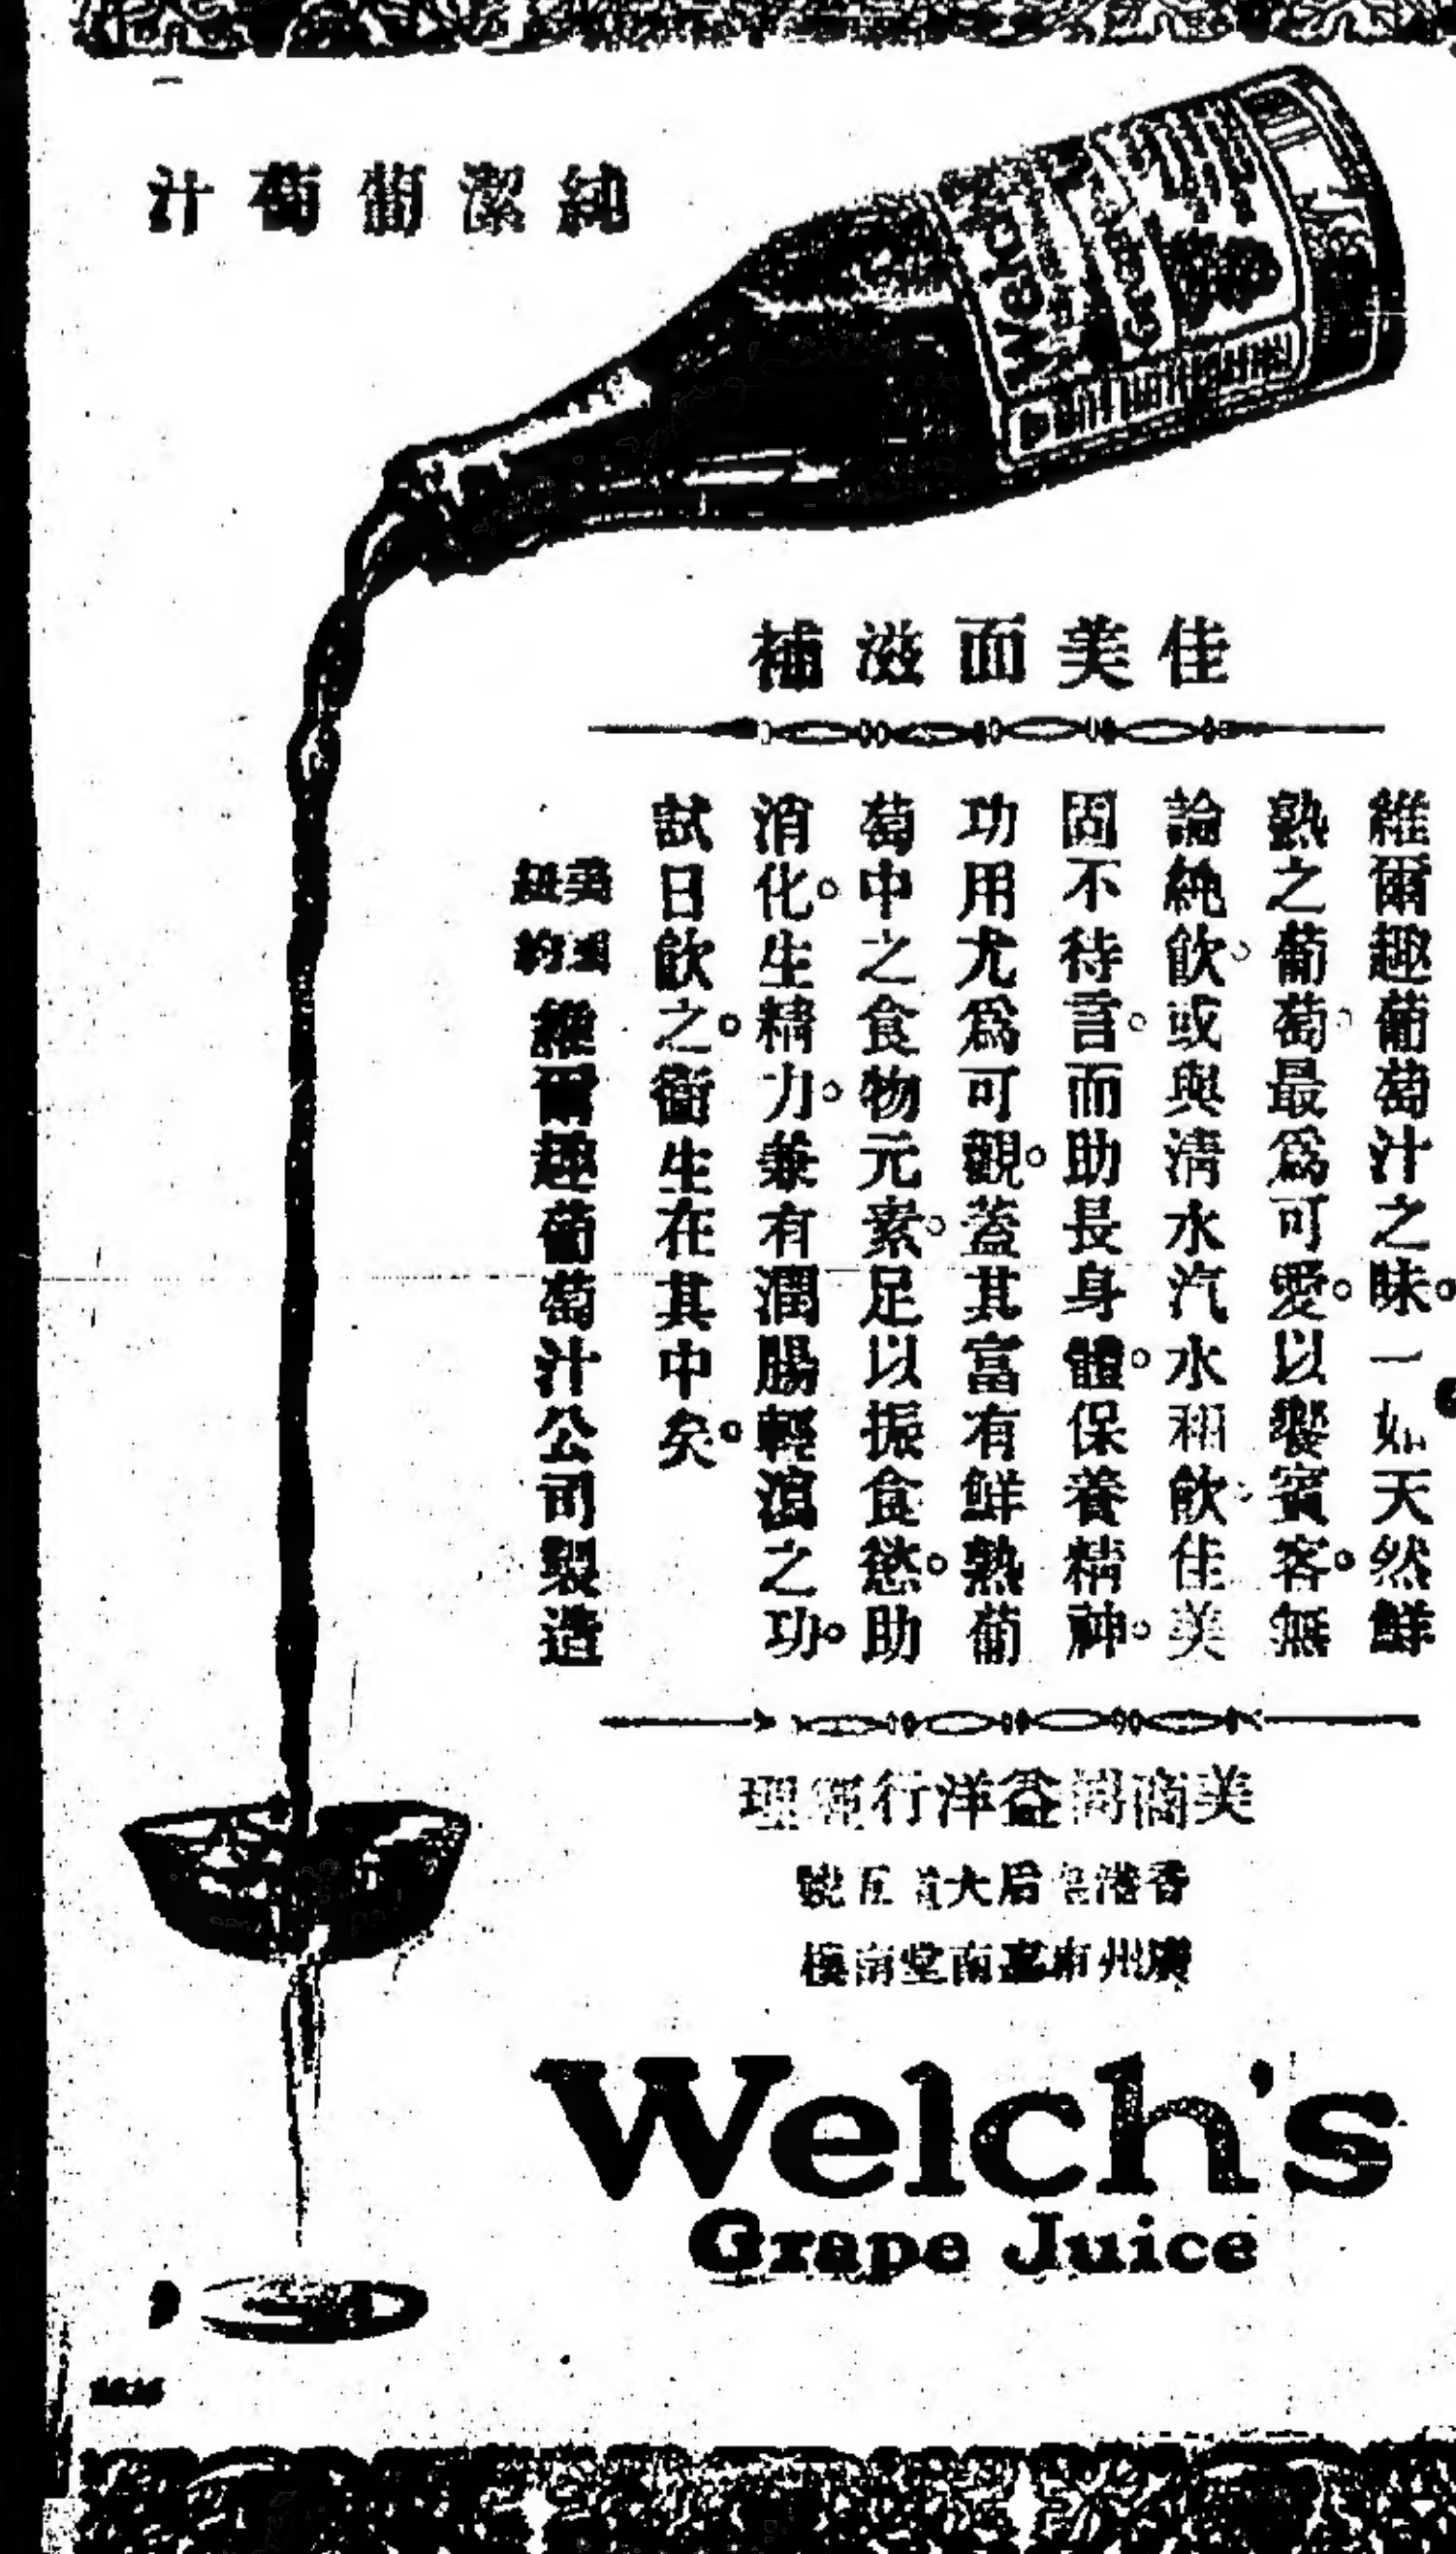 純潔葡萄汁
Welch's
佳美而滋補
維爾趣葡萄汁之味。一如天然鮮
熟之葡萄。最爲可愛。以饗賓客。無
論純飲。或與清水汽水和飲。佳美
固不待言。而助長身體。保養精神。
功用尤爲可觀。蓋其富有鮮熟葡
萄中之食物元素。足以振食慾。助
消化。生精力。兼有潤腸輕瀉之功。
試日飲之。衛生在其中矣。
美國
紐約
維爾趣葡萄汁公司製造
美商 益洋行 理
香港 后大 五號
廣州市 南堂南樓
Welch's
Grape Juice